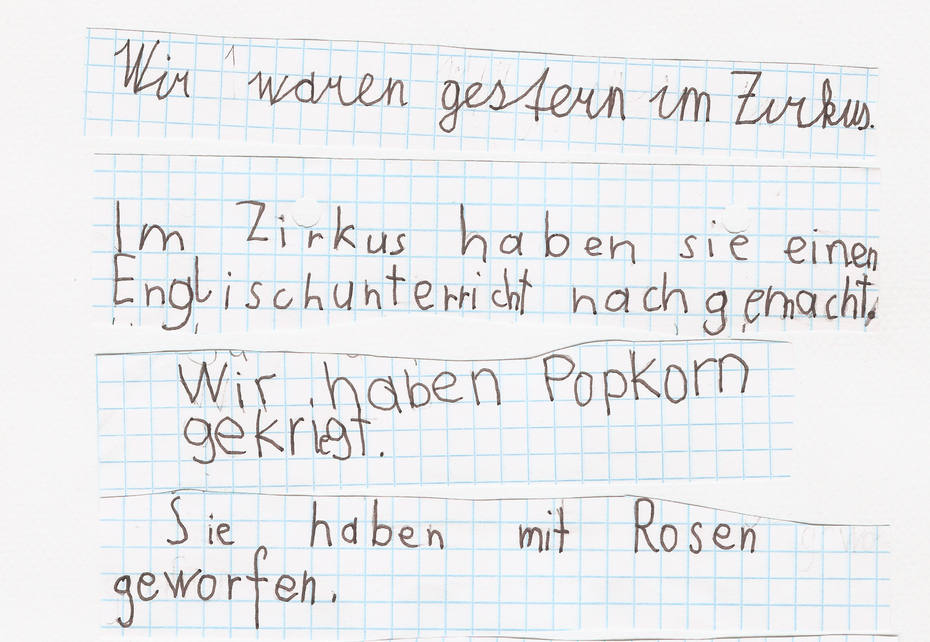 Wir waren gestern im Zirkus.
Im Zirkus haben sie einen
Englischunterricht nachgemacht.
Wir haben Popkorn
gekriegt.
Sie haben mit Rosen
geworfen.